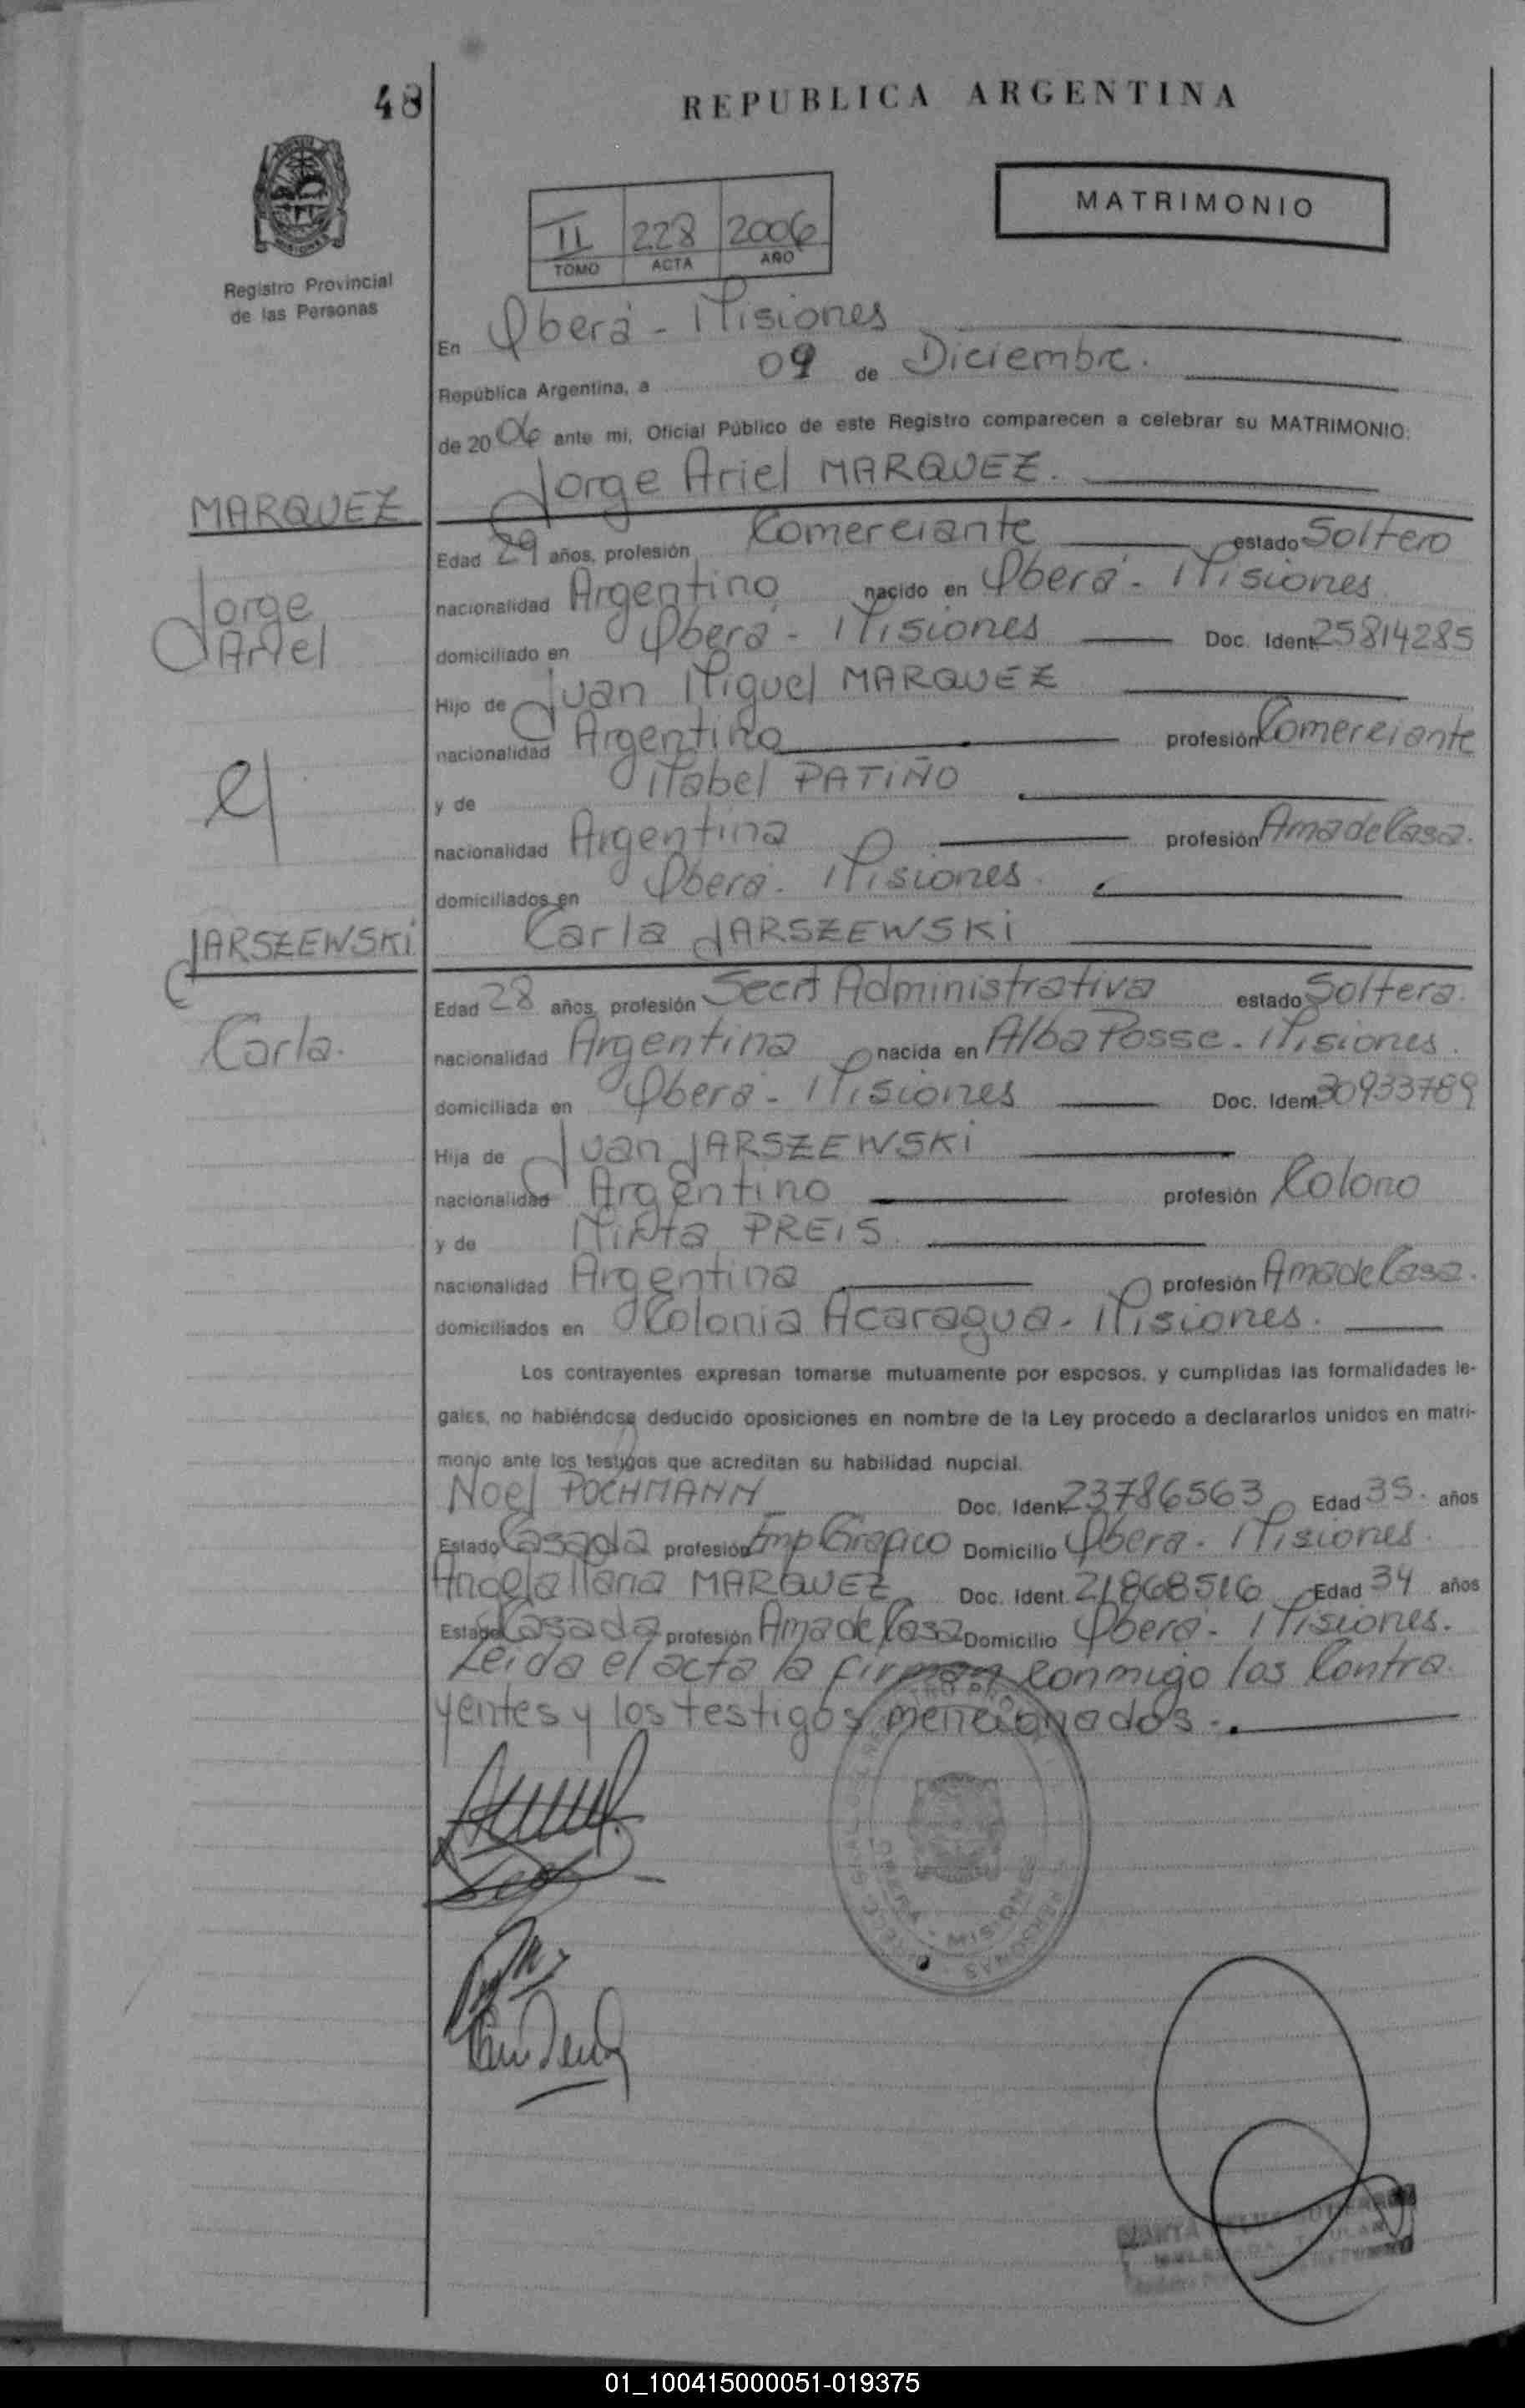 48
REPUBLICA ARGENTINA
MATRIMONIO
II 228 2006
TOMO ACTA AÑO
Registro Provincial
de las Personas
En Oberá - Misiones
República Argentina, a 09 de Diciembre.
de 2006 ante mi, Oficial Público de este Registro comparecen a celebrar su MATRIMONIO:
Jorge Ariel MARQUEZ.
MARQUEZ
Edad 29 años, profesión Comerciante estado Soltero
Jorge
nacionalidad Argentino nacido en Oberá - Misiones
Ariel
domiciliado en Oberá - Misiones Doc. Ident. 25814285
Hijo de Juan Miguel MARQUEZ
nacionalidad Argentino profesión Comerciante
y
y de Mabel PATIÑO
nacionalidad Argentina profesión Ama de Casa.
domiciliados en Oberá. Misiones.
JARSZEWSKi
Carla JARSZEWSKi
Edad 28 años, profesión Secrt Administrativa estado Soltera.
Carla.
nacionalidad Argentina nacida en Alba Posse - Misiones.
domiciliada en Oberá - Misiones Doc. Ident. 30933789
Hija de Juan JARSZEWSKi
nacionalidad Argentino profesión Colono
y de Mirta PREiS.
nacionalidad Argentina profesión Ama de Casa.
domiciliados en Colonia Acaragua - Misiones.
Los contrayentes expresan tomarse mutuamente por esposos, y cumplidas las formalidades le-
gales, no habiéndose deducido oposiciones en nombre de la Ley procedo a declararlos unidos en matri-
monio ante los testigos que acreditan su habilidad nupcial.
Noel POCHMANN Doc. Ident. 23786563 Edad 35. años
Estado Casada profesión Emp Grafico Domicilio Oberá - Misiones.
Angela Maria MARQUEZ Doc. Ident. 21868516 Edad 34 años
Estado Casada profesión Ama de Casa Domicilio Oberá - Misiones.
Leida el acta la firman conmigo los Contra
yentes y los testigos mencionados -.
OBERA - MISIONES
01_100415000051-019375